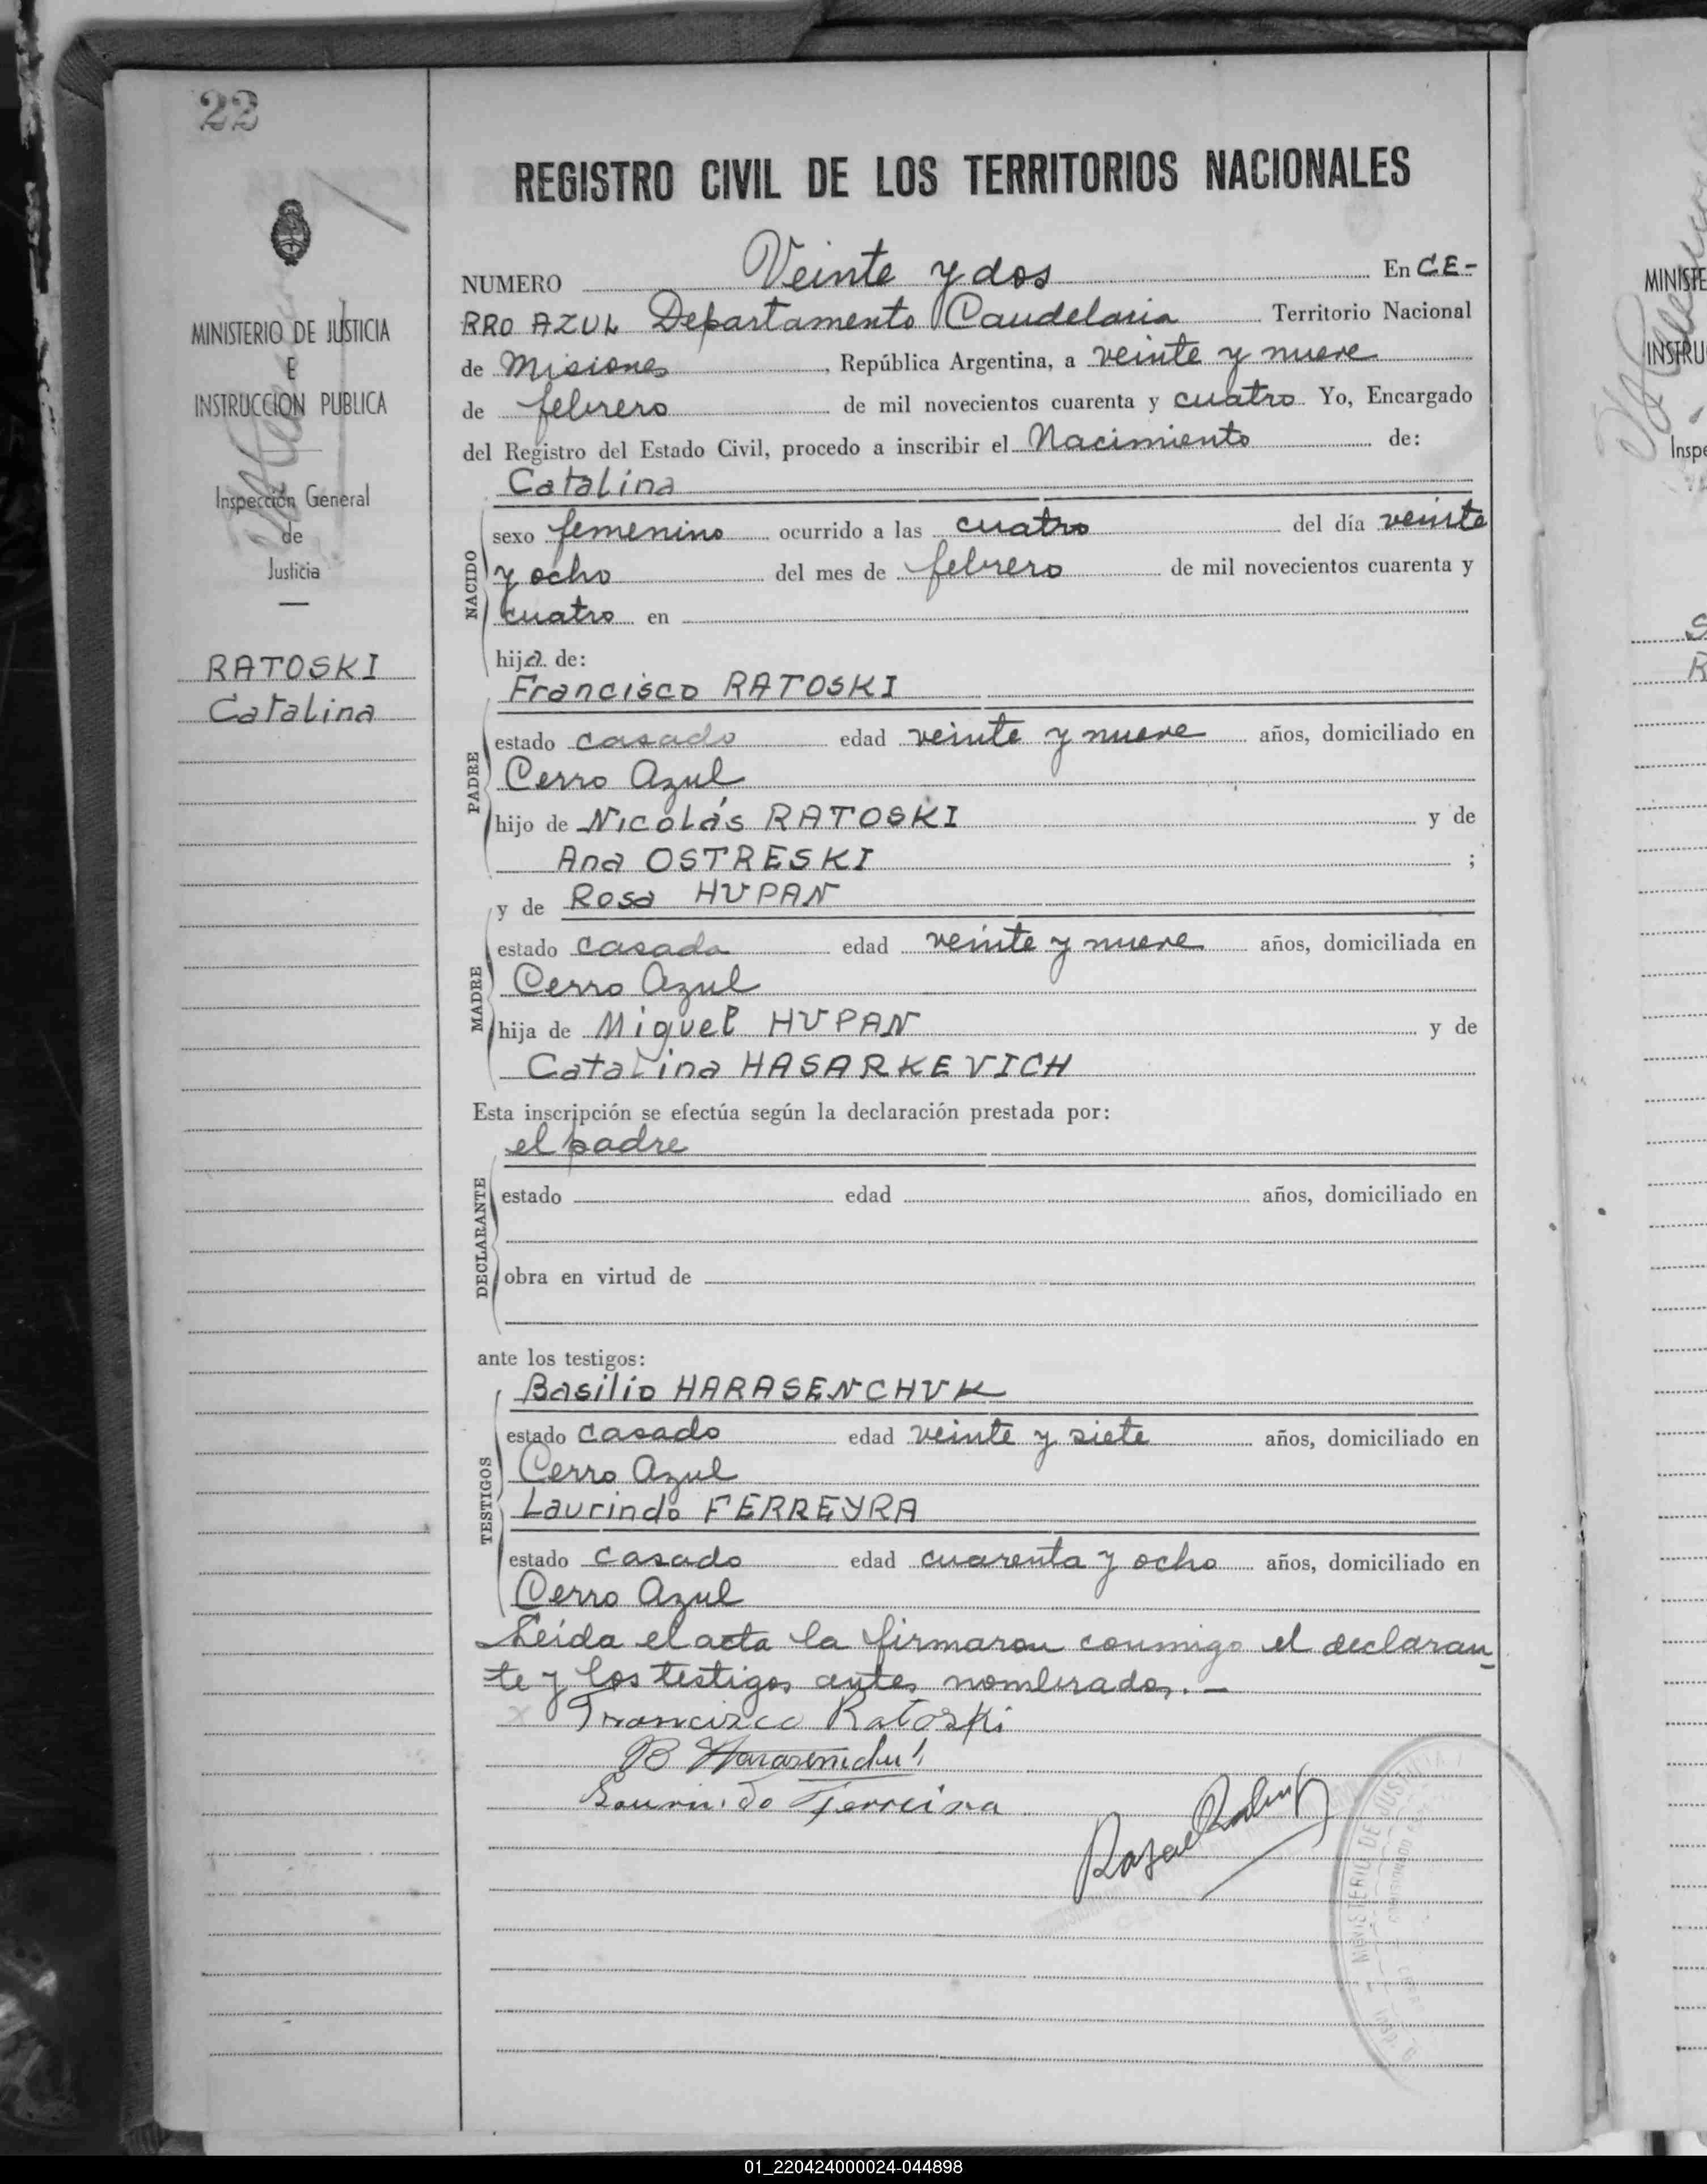 22
REGISTRO CIVIL DE LOS TERRITORIOS NACIONALES
MINISTERIO DE JUSTICIA
E
INSTRUCCION PUBLICA
Inspección General
de
Justicia
RATOSKI
Catalina
NUMERO Veinte y dos En CE-
RRO AZUL Departamento Candelaria Territorio Nacional
de Misiones, República Argentina, a veinte y nueve
de febrero de mil novecientos cuarenta y cuatro Yo, Encargado
del Registro del Estado Civil, procedo a inscribir el Nacimiento de:
Catalina
NACIDO
sexo femenino ocurrido a las cuatro del día veinte
y ocho del mes de febrero de mil novecientos cuarenta y
cuatro en
hija de:
Francisco RATOSKI
PADRE
estado casado edad veinte y nueve años, domiciliado en
Cerro Azul
hijo de Nicolás RATOSKI y de
Ana OSTRESKI ;
y de Rosa HUPAN
MADRE
estado casada edad veinte y nueve años, domiciliada en
Cerro Azul
hija de Miguel HUPAN y de
Catalina HASARKEVICH
Esta inscripción se efectúa según la declaración prestada por:
el padre
DECLARANTE
estado edad años, domiciliado en
obra en virtud de
ante los testigos:
Basilio HARASENCHUK
TESTIGOS
estado casado edad veinte y siete años, domiciliado en
Cerro Azul
Laurindo FERREYRA
estado casado edad cuarenta y ocho años, domiciliado en
Cerro Azul
Leída el acta la firmaron conmigo el declaran-
te y los testigos antes nombrados.-
Francizco Ratoski
B Harasemchu
Laurindo Ferreira
Rafael
MINISTERIO DE JUSTICIA
MINISTE
INSTRU
Inspe
01_220424000024-044898